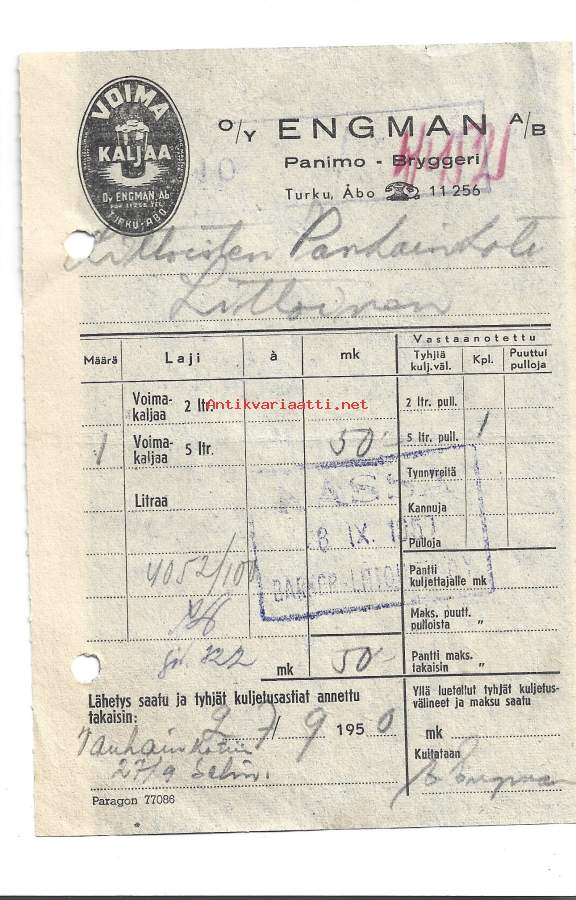 VOIMA
KALJAA
Oy ENGMAN, Ab
TURKU-ÅBO
O/Y ENGMAN A/B
Panimo - Bryggeri
Turku, Åbo 11 256
Littoisten Vanhainkoti
Littoinen
Määrä Laji à mk Vastaanotettu
Tyhjiä kulj.väl. Kpl. Puuttui pulloja
Voima-kaljaa 2 ltr. 2 ltr. pull.
Antikvariaatti.net
1 Voima-kaljaa 5 ltr. 50 5 ltr. pull. 1
Tynnyreitä
Litraa Kannuja
KASSA
IX. 195
Pulloja
4052/100
BARKER-LITTOINEN OY
Pantti kuljettajalle mk
Maks. puutt. pulloista „
322
mk 50 Pantti maks. takaisin „
Lähetys saatu ja tyhjät kuljetusastiat annettu
takaisin: 27/9 1950
Vanhainkotiin
27/9
Yllä luetellut tyhjät kuljetus-
välineet ja maksu saatu
mk
Kuitataan
Engman
Paragon 77086